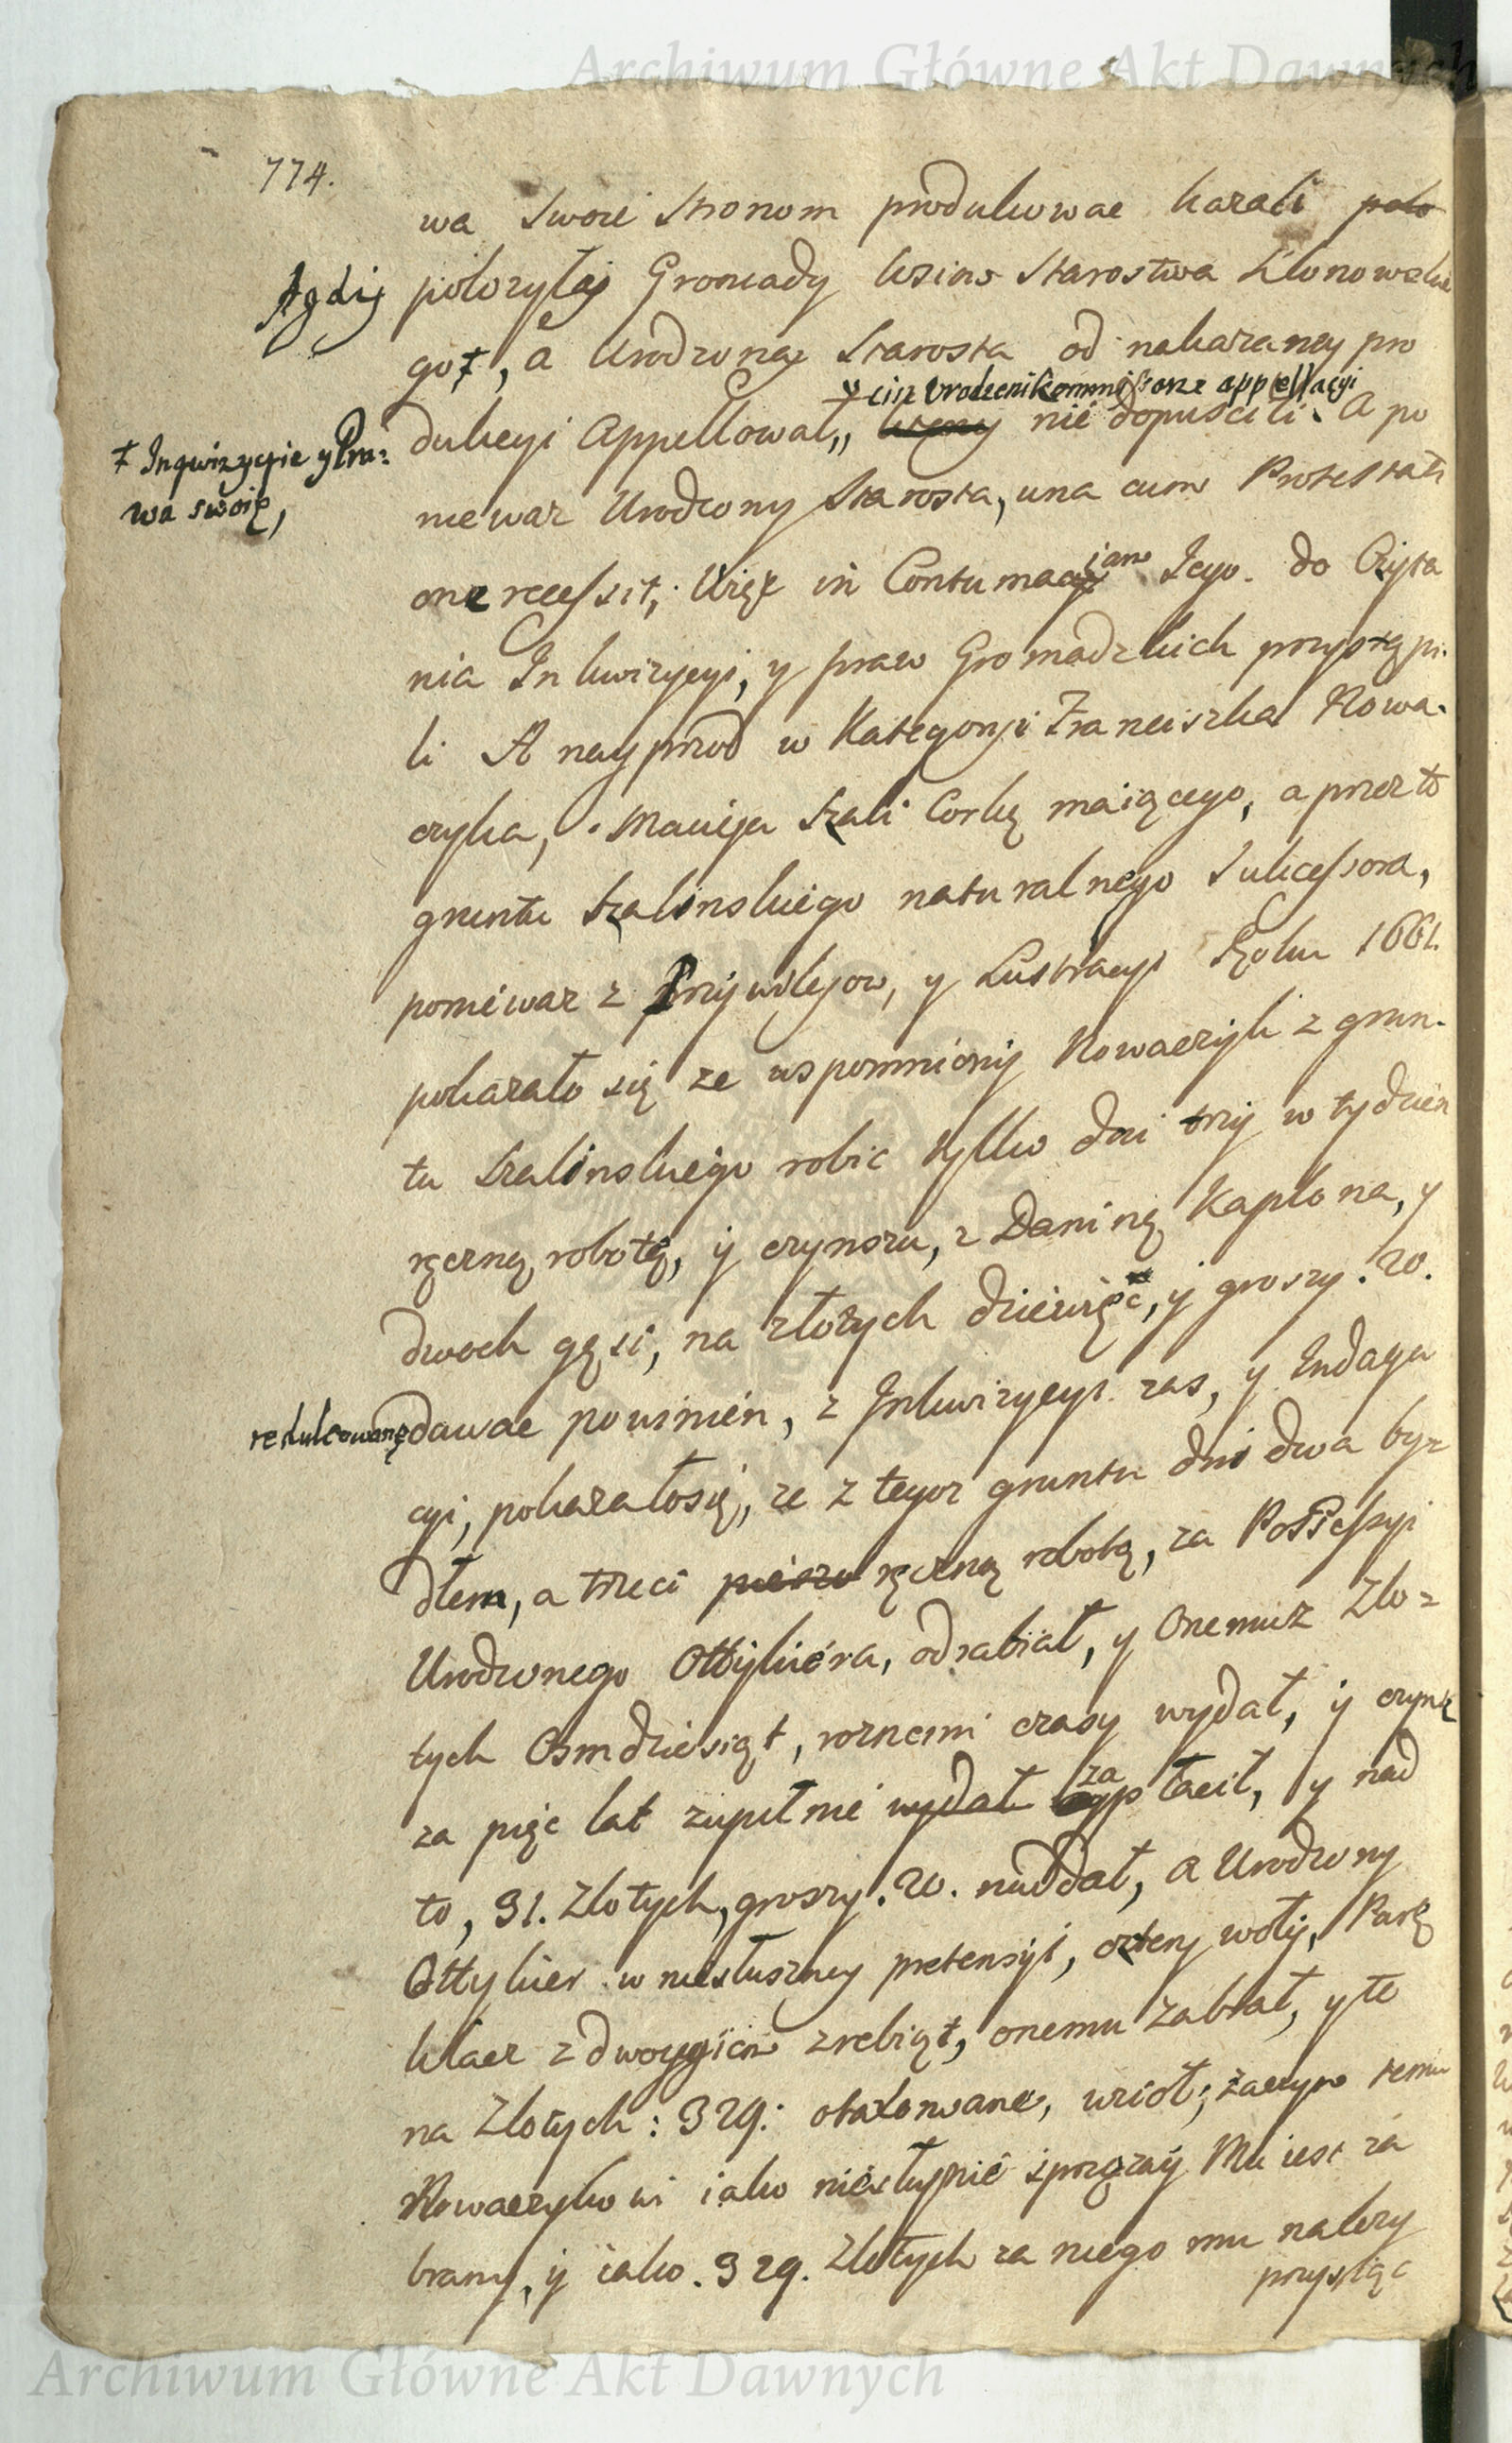 Archiwum Główne Akt Dawnych
774.
wa swoie stronom produkowac kazali polo
A gdij położyłaj Gromady wsiow Starostwa Klonowskie
go ‡, a Urodzony Starosta od nakazaney pro
‡ ciż Urodzeni Kommissarze appellacyi
dukcyi Appellował, nie dopuścili. A po
‡ Inqwizycyie y Pra:
wa swoię,
niewaz Urodzony Starosta, una cum Protestati
one recessit, Więc in Contumaciam Jego. do Czyta
nia Inkwizycyi, y praw Gromadzkich przystąpi.
li A nayprzod w Kategoryi Franciszka Nowa.
czyka, Macieja Szali Corkę maiącego, a przez to
gruntu Szalinskiego naturalnego Sukcessora,
poniewaz z Przywilejow, y Lustracyi Roku 1661.
pokazało się ze wspomniony Nowaczyk z grun.
tu Szalinskiego robic tylko dni trzy w tydzien
ręczną robotą, y czynszu, z Daniną Kapłona, y
dwoch gęsi, na złotych dziewięć, y groszy. 20.
redukowaną dawac powinien, z Inkwizycyi zas, y Indaga
cyi, pokazało się, ze z tegoz gruntu dni dwa by=
dłem, a trzeci pieszo ręczną robotą, za Possessyi
Urodzonego Ottykiera, odrabiał, y Onemuz Zło=
tych Osmdziesiąt, roznemi czasy wydał, y czynsz
za pięc lat zupełnie wydał zapłacił, y nad
to, 31. Złotych, groszy. 20. naddał, a Urodzony
Ottykier w niesłuszney pretensyi, cztery woły, Parę
klacz z dwoygiem zrebiąt, onemu zabrał, y te
na Złotych: 329: otaxowane, wziął; zaczym temu
Nowaczykowi iako niesłusznie sprzęzay Mu iest za
brany, y iako. 329. Złotych za niego mu nalezy
przysiąc
Archiwum Główne Akt Dawnych